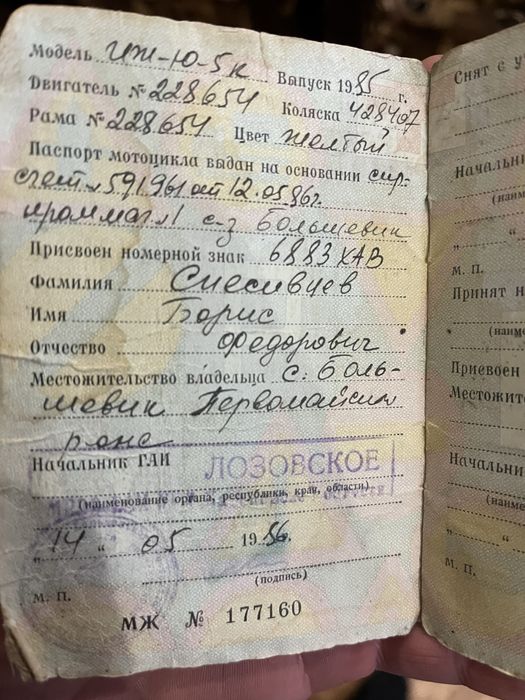 Модель ИЖ-Ю-5к Выпуск 1985 г.
Двигатель № 228654 Коляска 428407
Рама № 228654 Цвет желтый
Паспорт мотоцикла выдан на основании
счет № 591961 от 12.05.86г.
с-з Большевик
Присвоен номерной знак 6883 ХАВ
Фамилия Снесивцев
Имя Борис
Отчество Федорович
Местожительство владельца с. Боль-
шевик Первомайский
р-на
Начальник ГАИ ЛОЗОВСКОЕ
(наименование органа, республики, края, области)
„ 14 “ 05 1986.
(подпись)
М. П.
МЖ № 177160
Снят с у
Начальни
(наим
„ “
М. П.
Принят н
(наиме
Присвоен
Местожите
Начальни
(наиме
„ “
М. П.